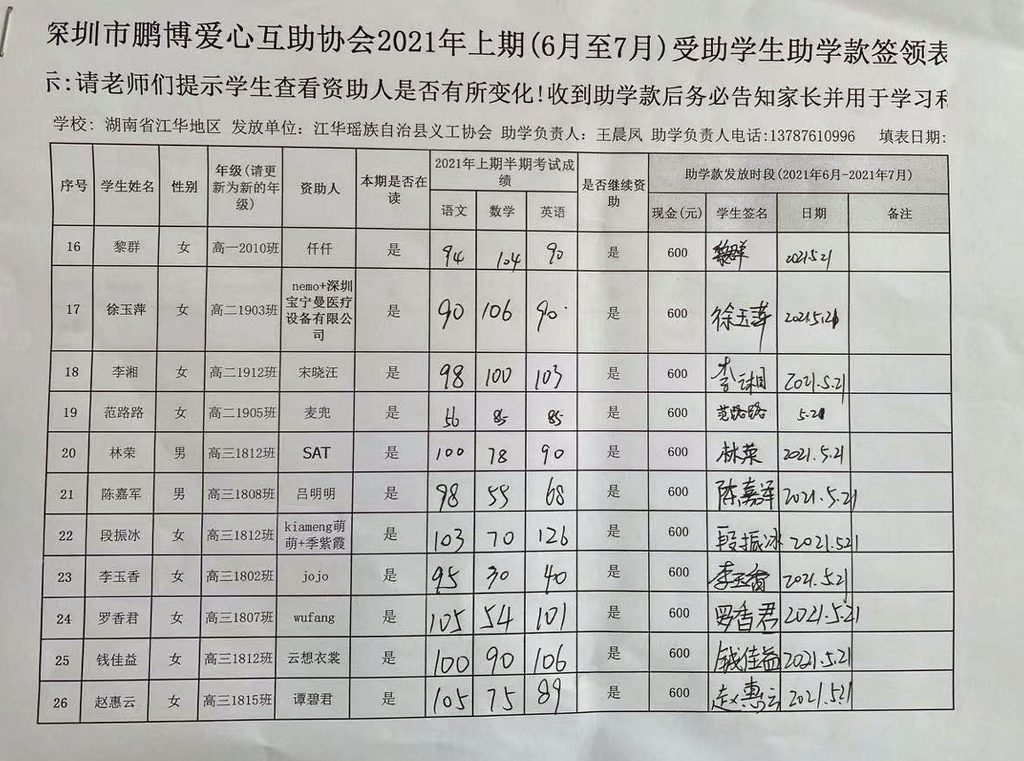 深圳市鹏博爱心互助协会2021年上期(6月至7月)受助学生助学款签领表
示:请老师们提示学生查看资助人是否有所变化!收到助学款后务必告知家长并用于学习和
学校: 湖南省江华地区 发放单位: 江华瑶族自治县义工协会 助学负责人: 王晨凤 助学负责人电话:13787610996 填表日期:
序号 学生姓名 性别 年级(请更新为新的年级) 资助人 本期是否在读 2021年上期半期考试成绩 是否继续资助 助学款发放时段(2021年6月-2021年7月)
语文 数学 英语 现金(元) 学生签名 日期 备注
16 黎群 女 高一2010班 仟仟 是 94 104 90 是 600 黎群 2021.5.21
17 徐玉萍 女 高二1903班 nemo+深圳宝宁曼医疗设备有限公司 是 90 106 90 是 600 徐玉萍 2021.5.21
18 李湘 女 高二1912班 宋晓汪 是 98 100 103 是 600 李湘 2021.5.21
19 范路路 女 高二1905班 麦兜 是 56 85 85 是 600 范路路 5.21
20 林荣 男 高三1812班 SAT 是 100 78 90 是 600 林荣 2021.5.21
21 陈嘉军 男 高三1808班 吕明明 是 98 55 68 是 600 陈嘉 2021.5.21
22 段振冰 女 高三1812班 kiameng萌萌+季紫霞 是 103 70 126 是 600 段振冰 2021.521
23 李玉香 女 高三1802班 jojo 是 95 30 40 是 600 李玉香 2021.5.21
24 罗香君 女 高三1807班 wufang 是 105 54 101 是 600 罗香君 2021.5.21
25 钱佳益 女 高三1812班 云想衣裳 是 100 90 106 是 600 钱佳益 2021.5.21
26 赵惠云 女 高三1815班 谭碧君 是 105 75 89 是 600 赵惠云 2021.5.21